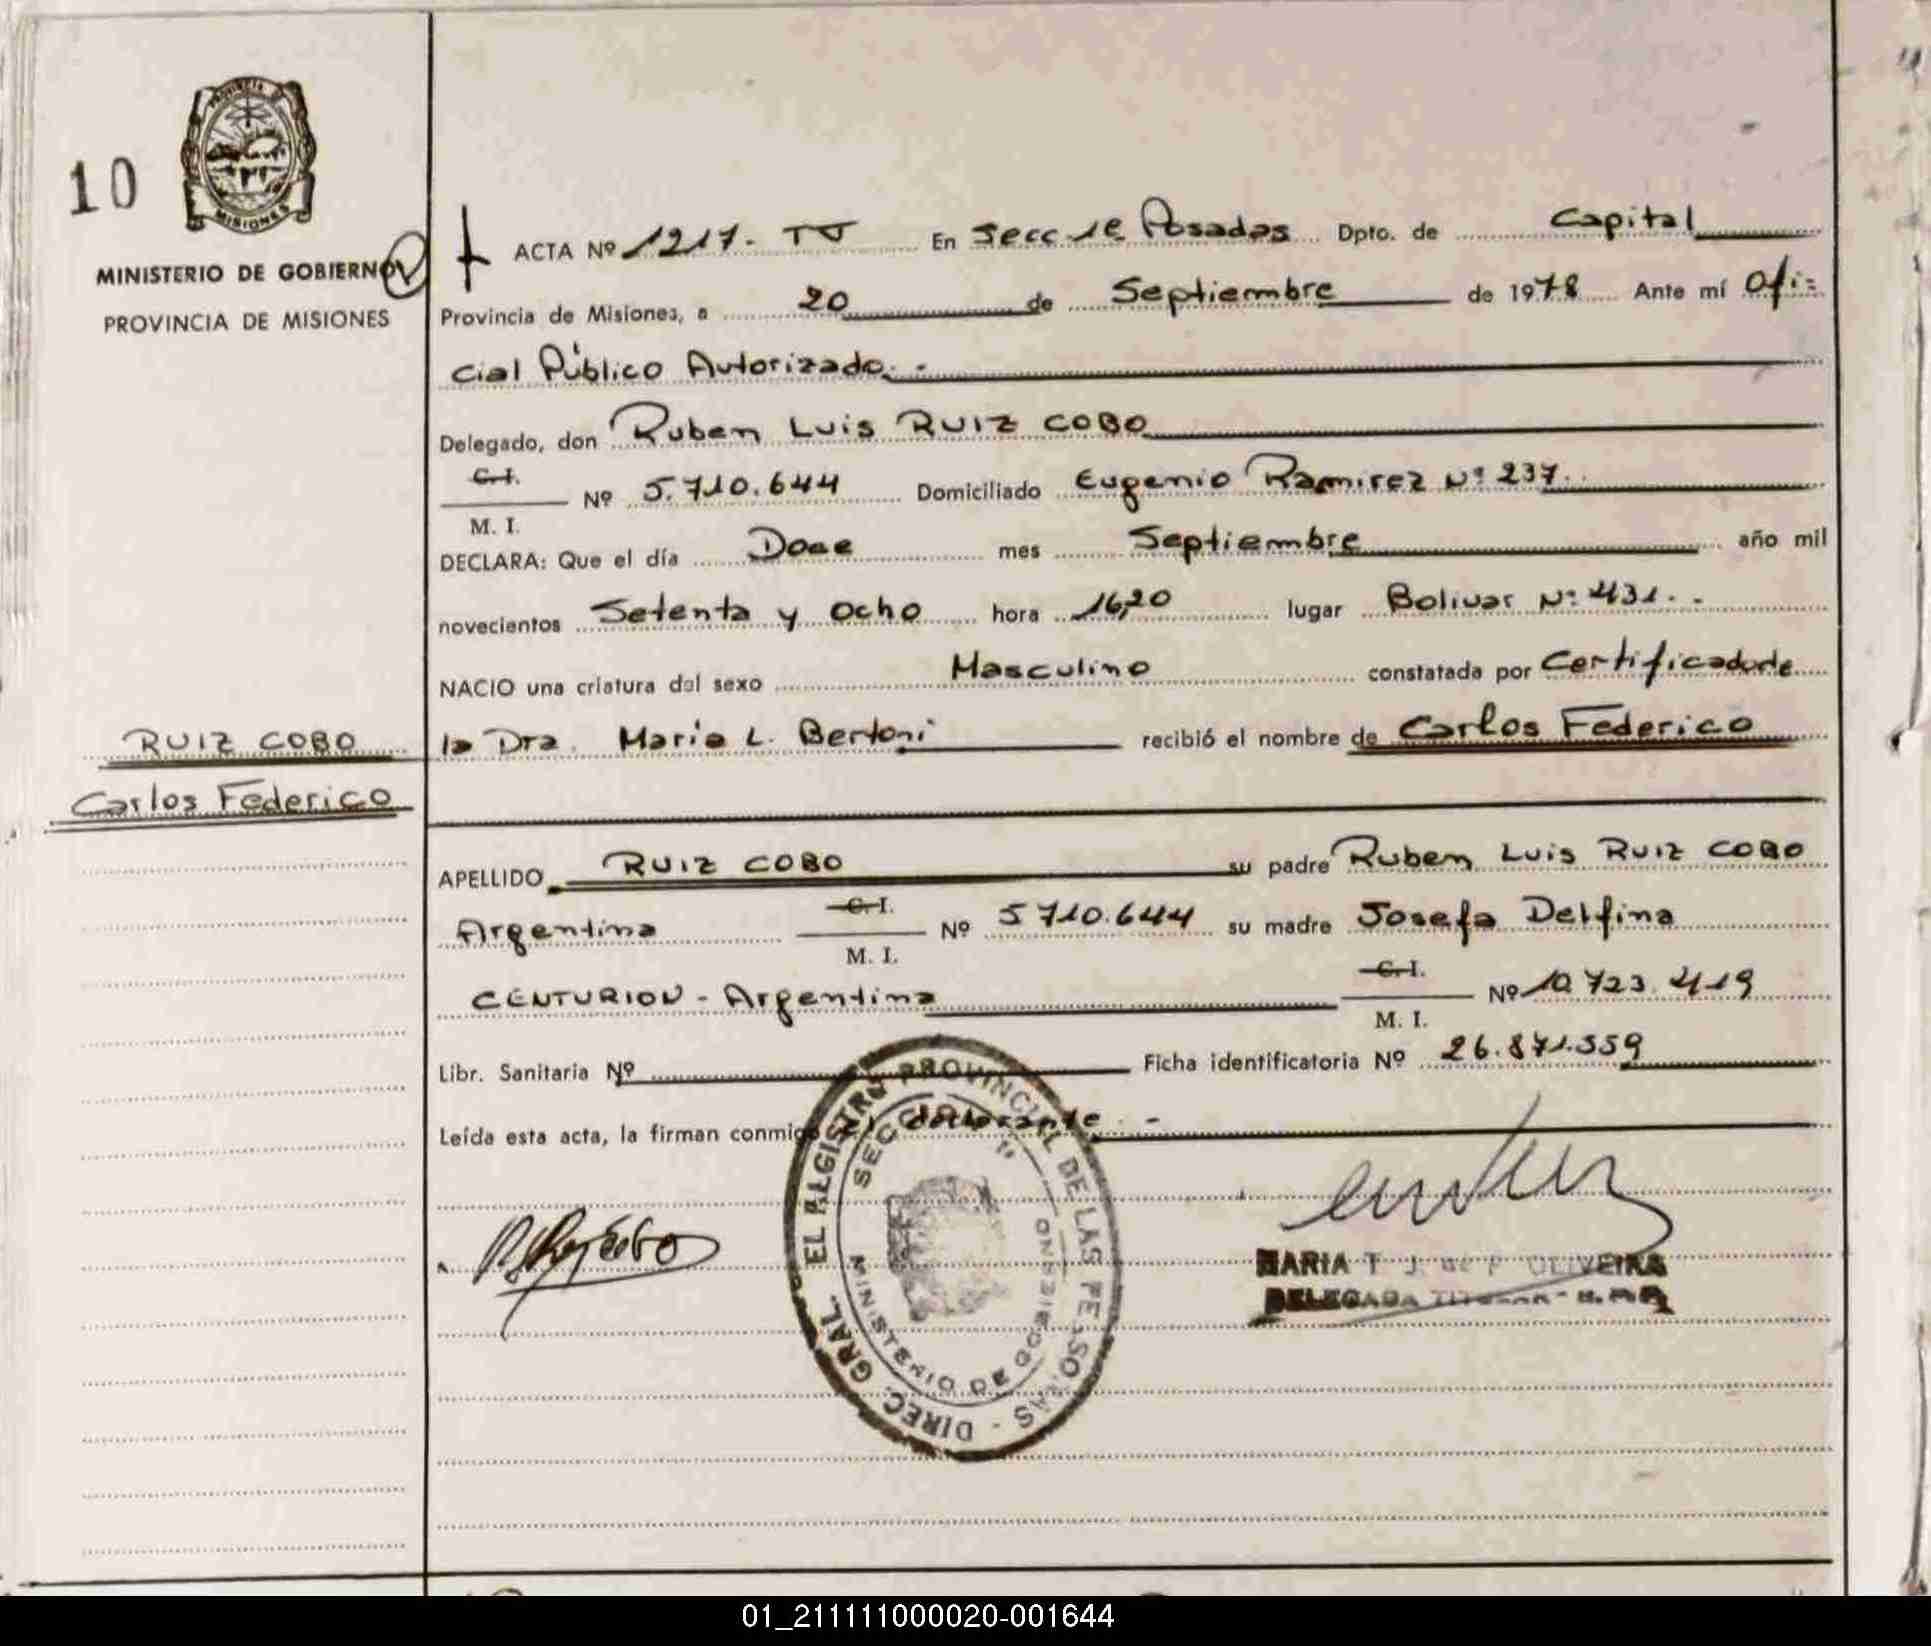 10
PROVINCIA DE
MISIONES
MINISTERIO DE GOBIERNO
PROVINCIA DE MISIONES
RUIZ COBO
Carlos Federico
ACTA Nº 1217. En Secc 1e Posadas Dpto. de Capital
Provincia de Misiones, a 20 de Septiembre de 1978 Ante mí Ofi-
cial Público Autorizado. -
Delegado, don Ruben Luis RUIZ COBO
C. I.
Nº 5.710.644 Domiciliado Eugenio Ramirez Nº 237.
M. I.
DECLARA: Que el día Doce mes Septiembre año mil
novecientos Setenta y Ocho hora 16,20 lugar Bolivar Nº 431. -
NACIO una criatura del sexo Masculino constatada por Certificado de
la Dra. Maria L. Bertoni recibió el nombre de Carlos Federico
APELLIDO RUIZ COBO su padre Ruben Luis RUIZ COBO
C. I.
Argentina Nº 5710.644 su madre Josefa Delfina
M. I.
C. I.
CENTURION - Argentina Nº 10.723.419
M. I.
Libr. Sanitaria Nº Ficha identificatoria Nº 26.871.559
Leída esta acta, la firman conmigo el declarante. -
DIREC. GRAL. EL REGISTRO PROVINCIAL DE LAS PERSONAS -
MINISTERIO DE GOBIERNO
MARIA T. J. de P. OLIVEIRA
DELEGADA
01_211111000020-001644